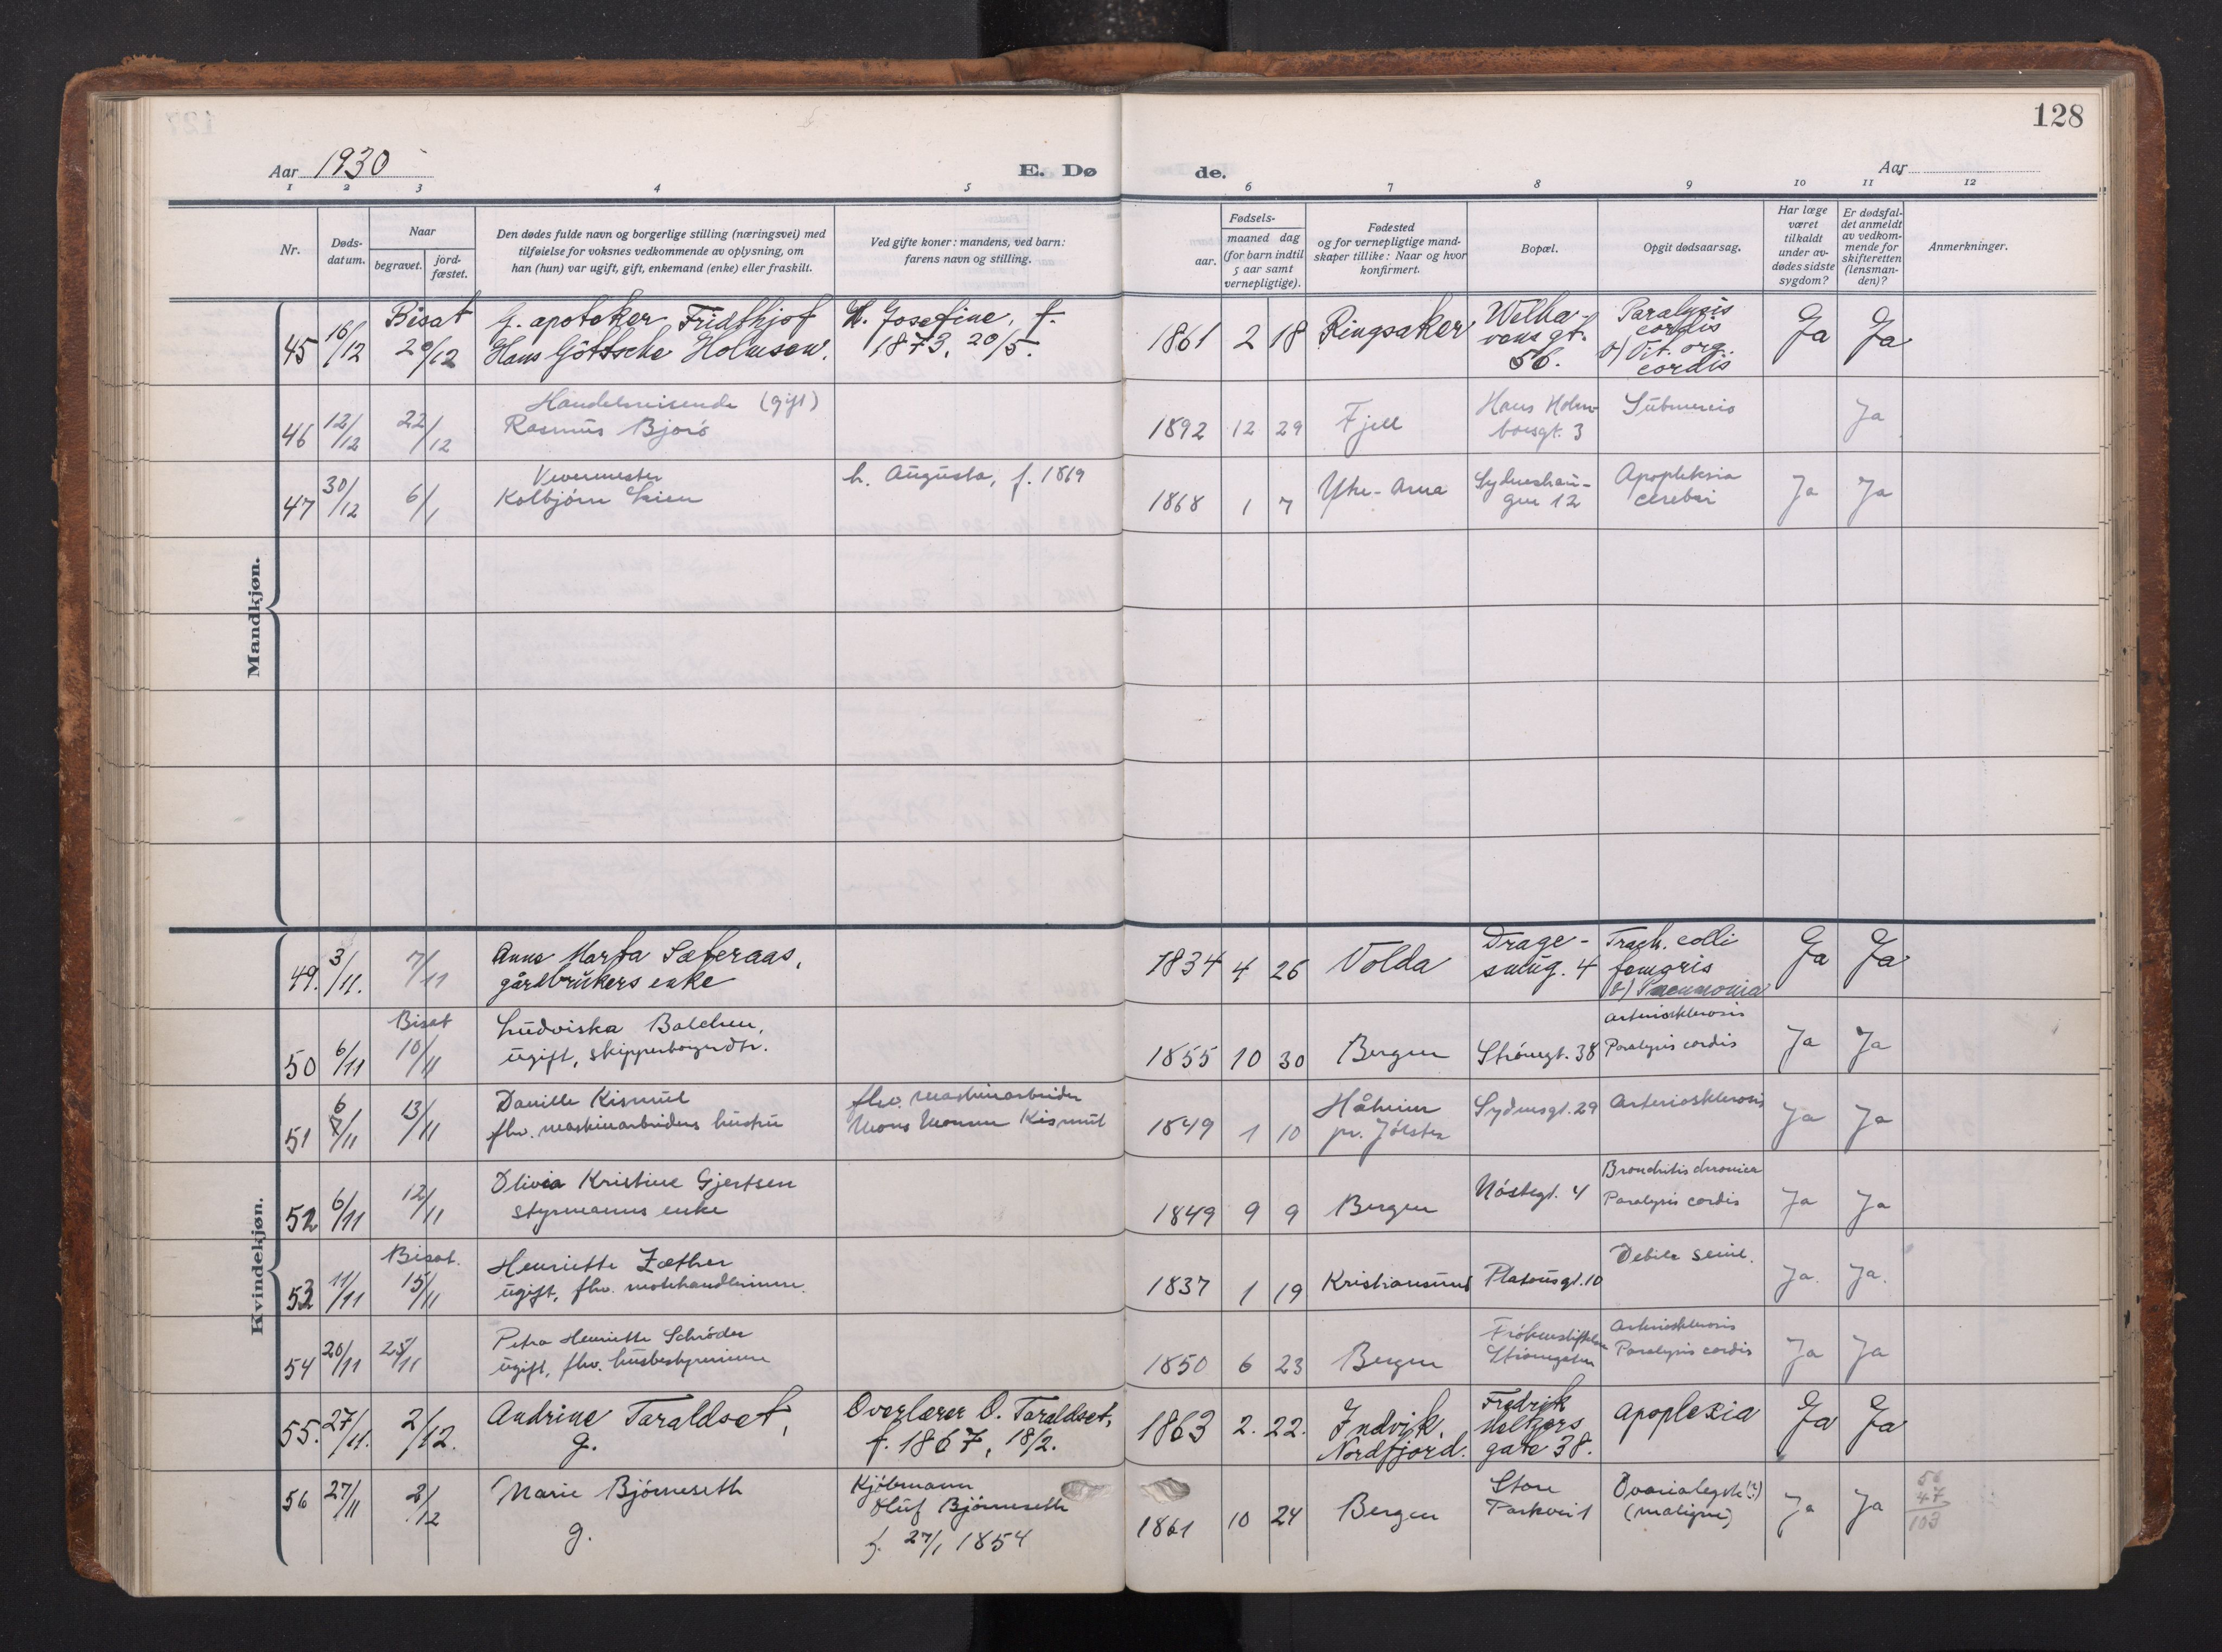 128
Aar 1930
E. Dø
de.
Aar
1 2 3 4 5 6 7 8 9 10 11 12
Nr.
Døds-
datum.
Naar
begravet.
jord-
fæstet.
Den dødes fulde navn og borgerlige stilling (næringsvei) med
tilføielse for voksnes vedkommende av oplysning, om
han (hun) var ugift, gift, enkemand (enke) eller fraskilt.
Ved gifte koner: mandens, ved barn:
farens navn og stilling.
Fødsels-
aar.
maaned dag
(for barn indtil
5 aar samt
vernepligtige).
Fødested
og for vernepligtige mand-
skaper tillike: Naar og hvor
konfirmert.
Bopæl.
Opgit dødsaarsag.
Har læge
været
tilkaldt
under av-
dødes sidste
sygdom?
Er dødsfal-
det anmeldt
av vedkom-
mende for
skifteretten
(lensman-
den)?
Anmerkninger.
Mandkjøn.
45 16/12 Bisat 20/12
G. apoteker Fridthjof
Hans Göttsche Holmsen.
H. Josefine, f.
1873, 20/5.
1861 2 18 Ringsaker
Welha-
vens gt.
56.
Paralysis
cordis
b) Vit. org.
cordis
Ja Ja
46 12/12 22/12
Handelsreisende (gift)
Rasmus Bjorö
1892 12 29 Fjell
Hans Holm-
boesgt. 3
Submersio
Ja
47 30/12 6/1
Vevermester
Kolbjörn Lien
h. Augusta, f. 1869
1868 1 7 Ytre-Arna
Sydneshau-
gen 12
Apopleksia
cerebri
Ja Ja
Kvindekjøn.
49. 3/11. 7/11
Anna Marta Sæteraas,
gårdbrukers enke
1834 4 26 Volda
Drage-
smug. 4
Frach. colli
femoris
b) Pneumonia
Ja Ja
50 6/11 Bisat 10/11
Ludviska Balchen,
ugift, skipperborgerdtr.
1855 10 30 Bergen Strömgt. 38
Arteriosklerosis
Paralysis cordis
Ja Ja
51 6/11 13/11
Danille Kismul
fhv. maskinarbeiders hustru
fhv. maskinarbeider
Mons Monsen Kismul
1849 1 10
Håheim
pr. Jölster
Sydnesgt. 29 Arteriosklerosis
Ja Ja
52 6/11 12/11
Olivia Kristine Gjertsen
styrmanns enke
1849 9 9 Bergen Nöstegt. 4
Bronchitis chronica
Paralysis cordis
Ja Ja
53 11/11 Bisat. 15/11
Henriette Zæther
ugift, fhv. motehandlerinne.
1837 1 19 Kristiansund Platousgt. 10
Debile senil.
Ja. Ja.
54 20/11 25/11
Petra Henriette Schröder
ugift, fhv. husbestyrerinne
1850 6 23 Bergen
Frökenstiftelsen
Strömgaten
Arteriosklerosis
Paralysis cordis
Ja Ja
55. 27/11. 2/12.
Andrine Taraldset,
g.
Overlærer O. Taraldset,
f. 1867, 18/2.
1863 2. 22.
Indvik,
Nordfjord.
Fredrik
Meltzers
gate 38.
apoplexia
Ja Ja
56 27/11 3/12
Marie Björneseth
g.
Kjöbmann
Oluf Björneseth
f. 27/1 1854
1861 10 24 Bergen
Store
Parkvei 1
Ovarialcyste (?)
(malign)
Ja Ja
56
47
103